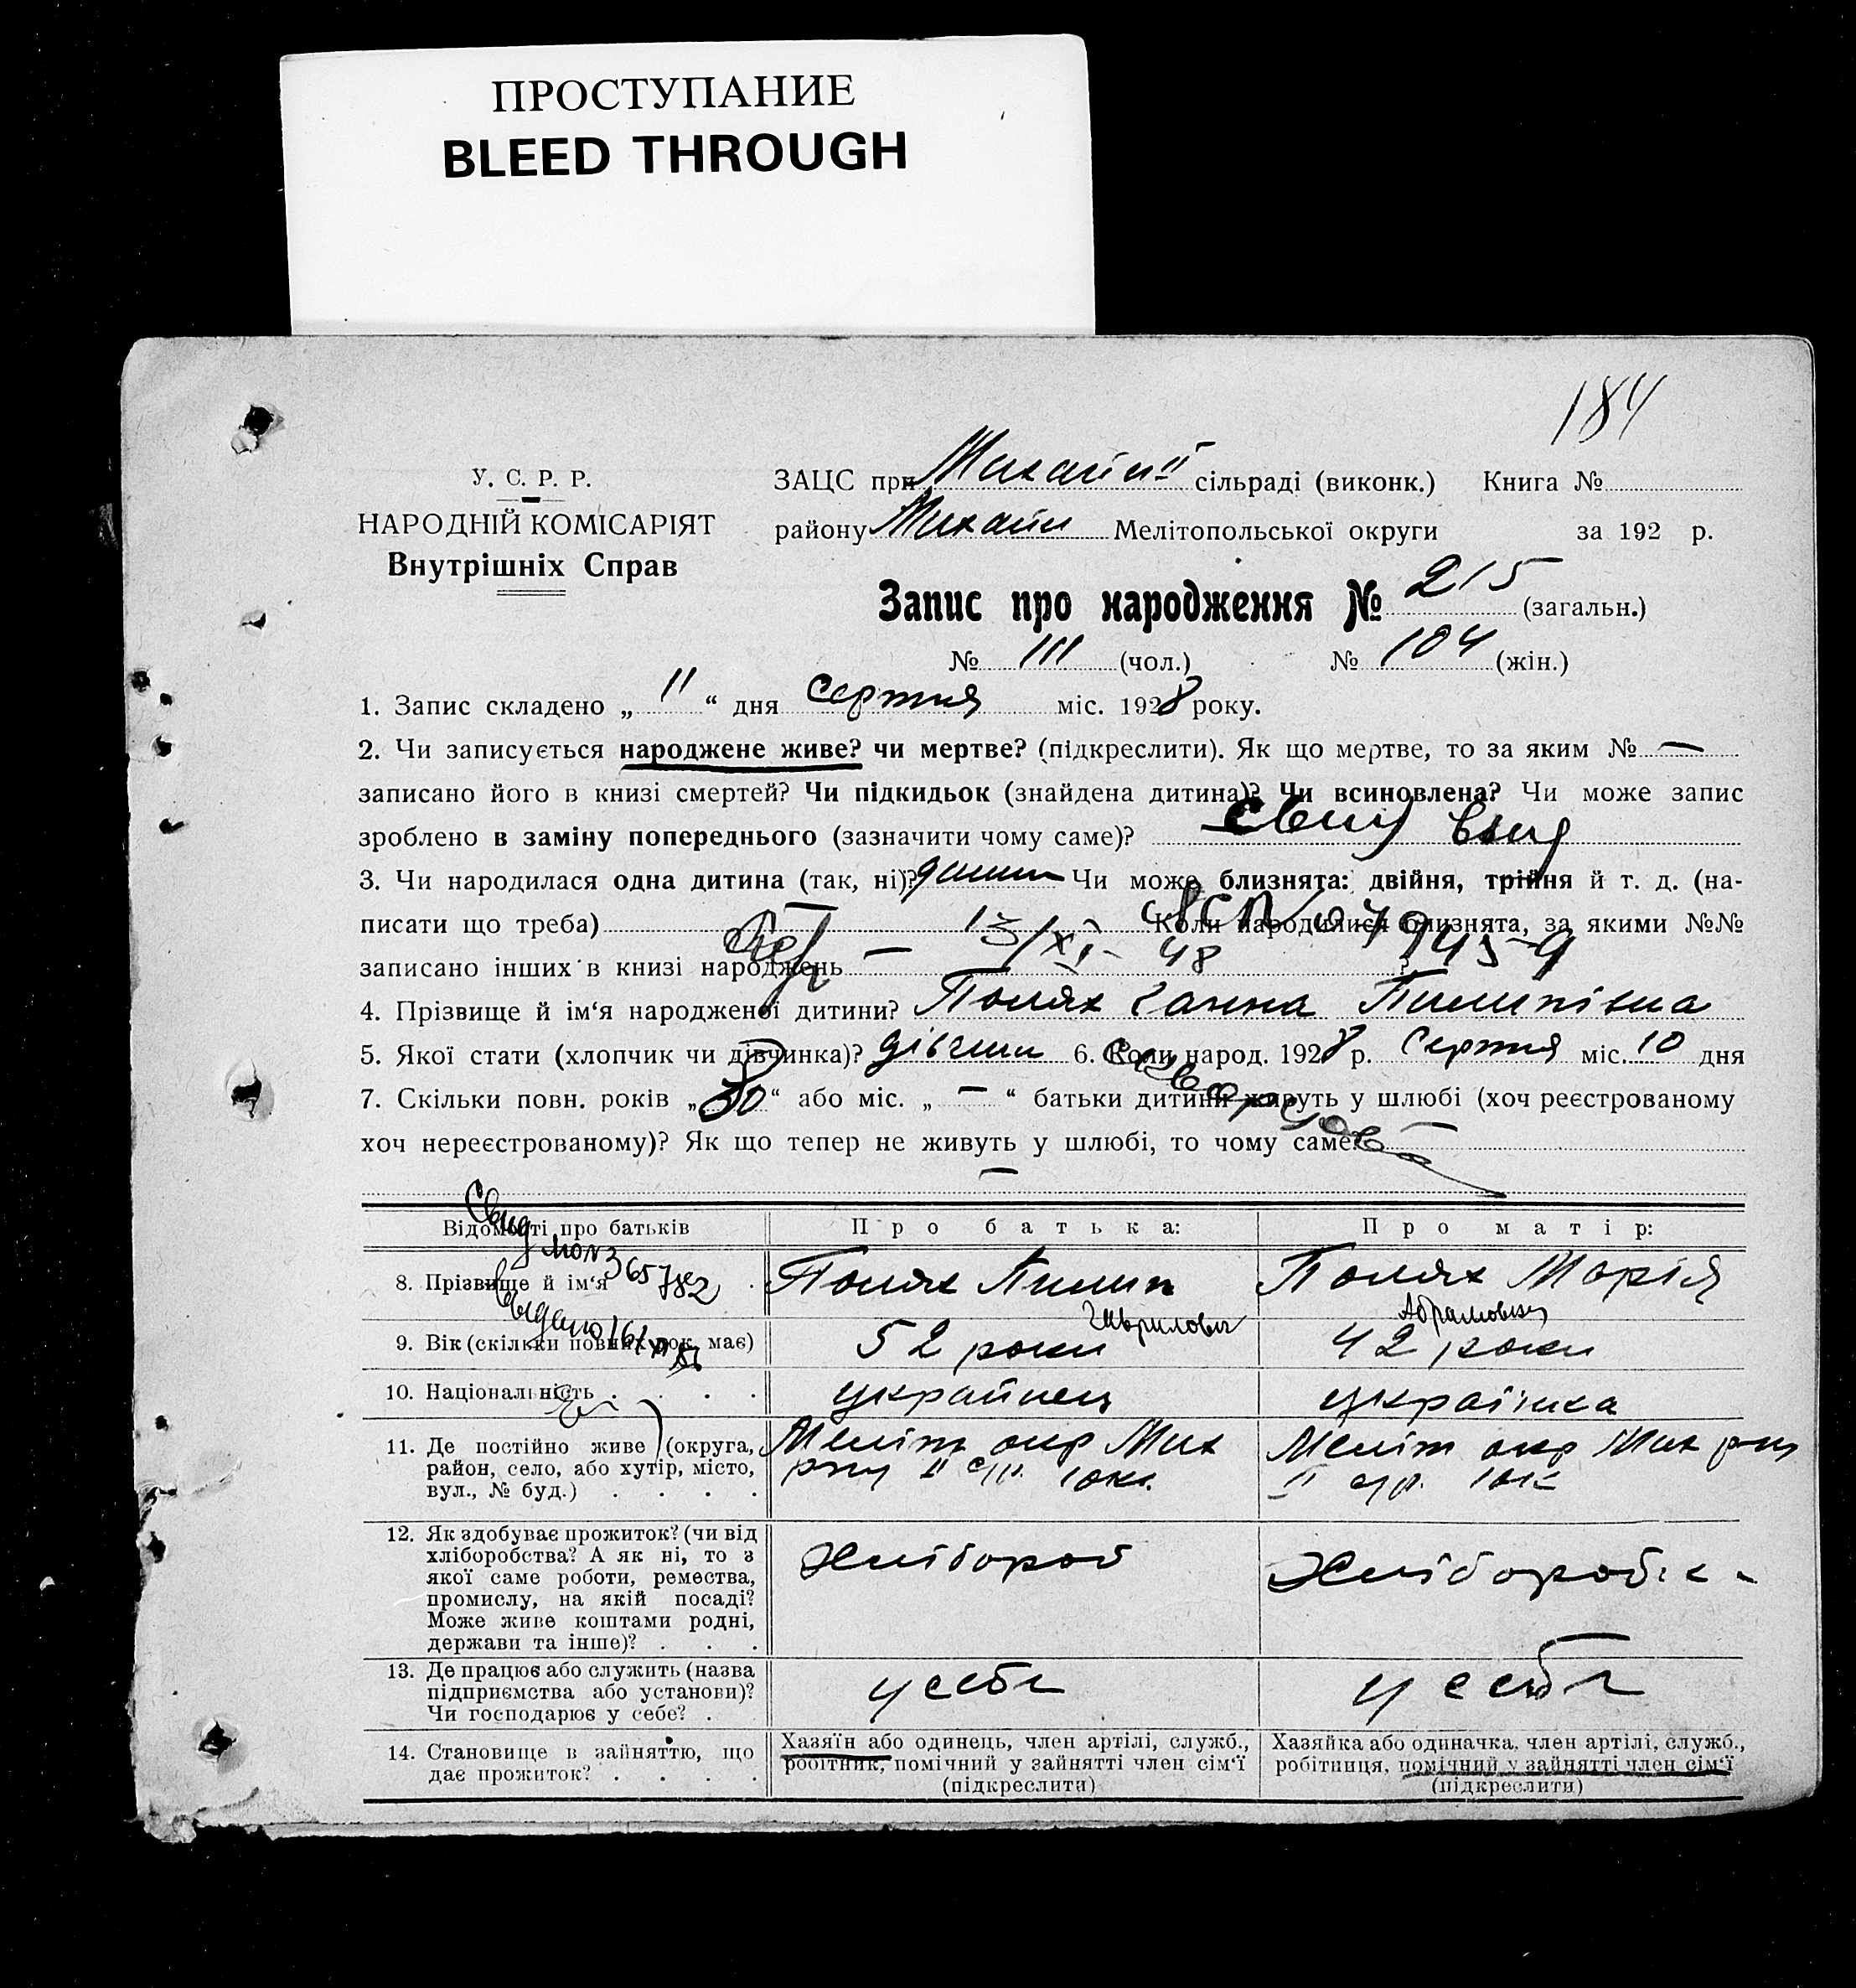 ПРОСТУПАНИЕ
BLEED THROUGH
184
У. С. Р. Р.
НАРОДНІЙ КОМІСАРІЯТ
Внутрішніх Справ
ЗАЦС при Михайл II сільраді (виконк.) Книга №
району Михайл Мелітопольської округи за 192 р.
Запис про народження № 215 (загальн.)
№ 111 (чол.) № 104 (жін.)
1. Запис складено „ 11 “ дня серпня міс. 1928 року.
2. Чи записується народжене живе? чи мертве? (підкреслити). Як що мертве, то за яким № —
записано його в книзі смертей? Чи підкидьок (знайдена дитина)? Чи всиновлена? Чи може запис
зроблено в заміну попереднього (зазначити чому саме)?
3. Чи народилася одна дитина (так, ні)? Чи може близнята: двійня, трійня й т. д. (на-
писати що треба) — Коли народилися близнята, за якими №№
записано інших в книзі народжень — 13/XI - 48
4. Прізвище й ім‘я народженої дитини? Полях Ганна Пилипівна
5. Якої стати (хлопчик чи дівчинка)? дівчин 6. Коли народ. 1928 р. Серпня міс. 10 дня
7. Скільки повн. років „ 30 “ або міс. „ — “ батьки дитини живуть у шлюбі (хоч реєстрованому
хоч нереєстрованому)? Як що тепер не живуть у шлюбі, то чому саме? —
—
Відомості про батьків Про батька: Про матір:
Свид
8. Прізвище й ім‘я Полях Пилип Гаврилович Полях Марія Абрамовна
365782
выдано
9. Вік (скільки повних рок. має) 52 роки 42 роки
10. Національність українець українка
11. Де постійно живе (округа, район, село, або хутір, місто, вул., № буд.) Меліт окр Мих рну II с/р. Меліт окр Мих рну II с/р.
12. Як здобуває прожиток? (чи від хліборобства? А як ні, то з якої саме роботи, ремества, промислу, на якій посаді? Може живе коштами родні, держави та інше)? Хлібороб Хлібороб
13. Де працює або служить (назва підприємства або установи)? Чи господарює у себе? у себе у себе
14. Становище в зайняттю, що дає прожиток? Хазяїн або одинець, член артілі, служб., робітник, помічний у зайнятті член сім‘ї (підкреслити) Хазяйка або одиначка, член артілі, служб., робітниця, помічний у зайнятті член сім‘ї (підкреслити)